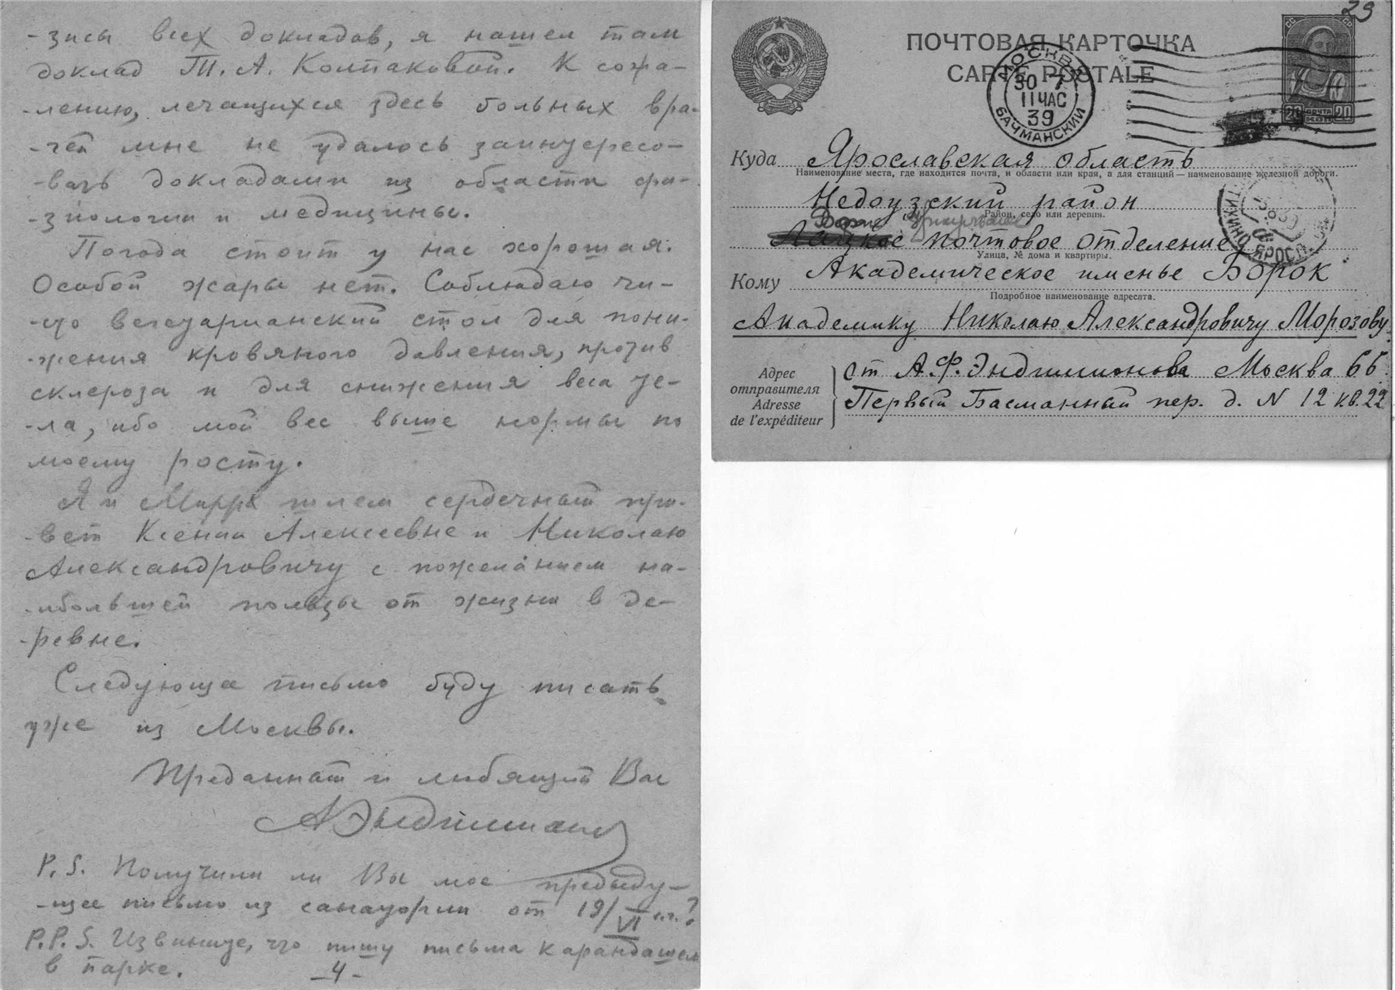 -зисы всех докладов, я нашел там
доклад Т. А. Колпаковой. К сожа-
-лению, лечащихся здесь больных вра-
-чей мне не удалось заинтересо-
-вать докладами из области фи-
-зиологии и медицины.
Погода стоит у нас хорошая.
Особой жары нет. Соблюдаю чи-
-сто вегетарианский стол для пони-
-жения кровяного давления, против
склероза и для снижения веса те-
-ла, ибо мой вес выше нормы по
моему росту.
Я и Мирра шлем сердечный при-
-вет Ксении Алексеевне и Николаю
Александровичу с пожеланием на-
-ибольшей пользы от жизни в де-
-ревне.
Следующее письмо буду писать
уже из Москвы.
Преданный и любящий Вас
АЭндимионов
P.S. Получили ли Вы мое предыду-
-щее письмо из санатории от 19/VI с.г.?
P.P.S. Извините, что пишу письма карандашем
в парке.
-4-
29
ПОЧТОВАЯ КАРТОЧКА
CARTE POSTALE
МОСКВА
30 7
11 ЧАС
39
БАУМАНСКИЙ
20 ПОЧТА 20
Куда Ярославская область
Наименование места, где находится почта, и области или края, а для станций — наименование железной дороги.
Некоузский район
Район, село или деревня.
почтовое отделение
Улица, № дома и квартиры.
ЯРОСЛ.
Кому Академическое именье Борок
Подробное наименование адресата.
Академику Николаю Александровичу Морозову
Адрес отправителя
Adresse de l'expéditeur
от А.Ф. Эндимионова Москва 66
Первый Басманный пер. д. N 12 кв. 22